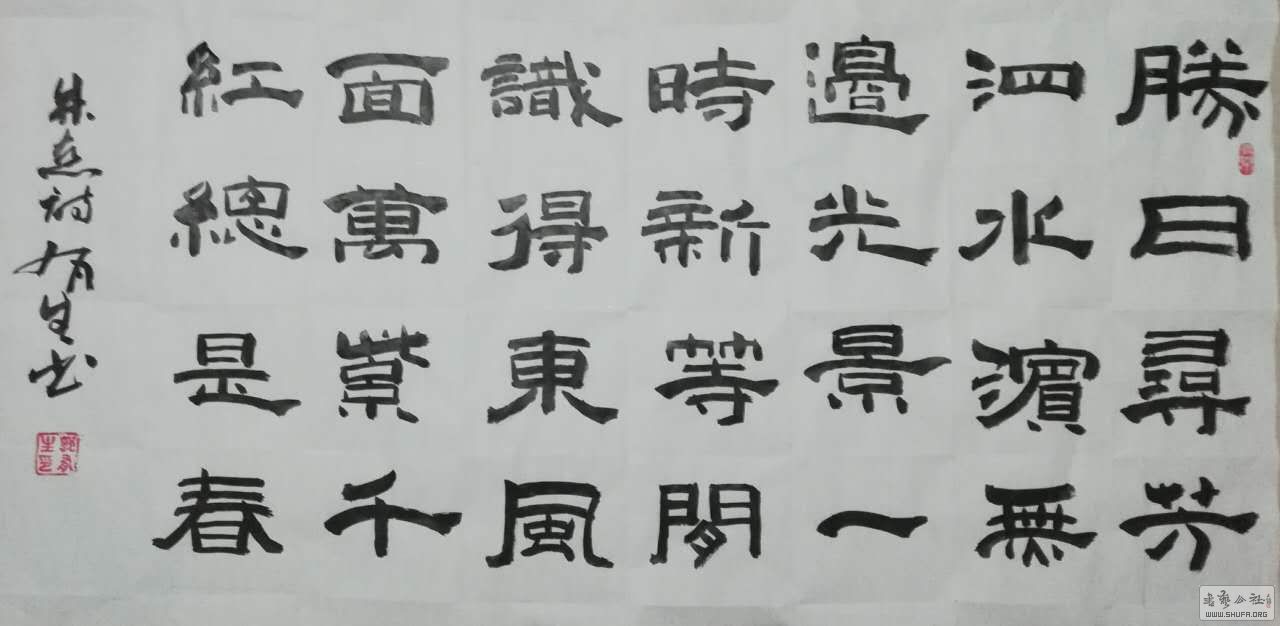 勝日尋芳
泗水濵無
邉光景一
時新等閒
識得東風
面萬紫千
紅總是春
朱熹詩有生书
书艺公社
WWW.SHUFA.ORG